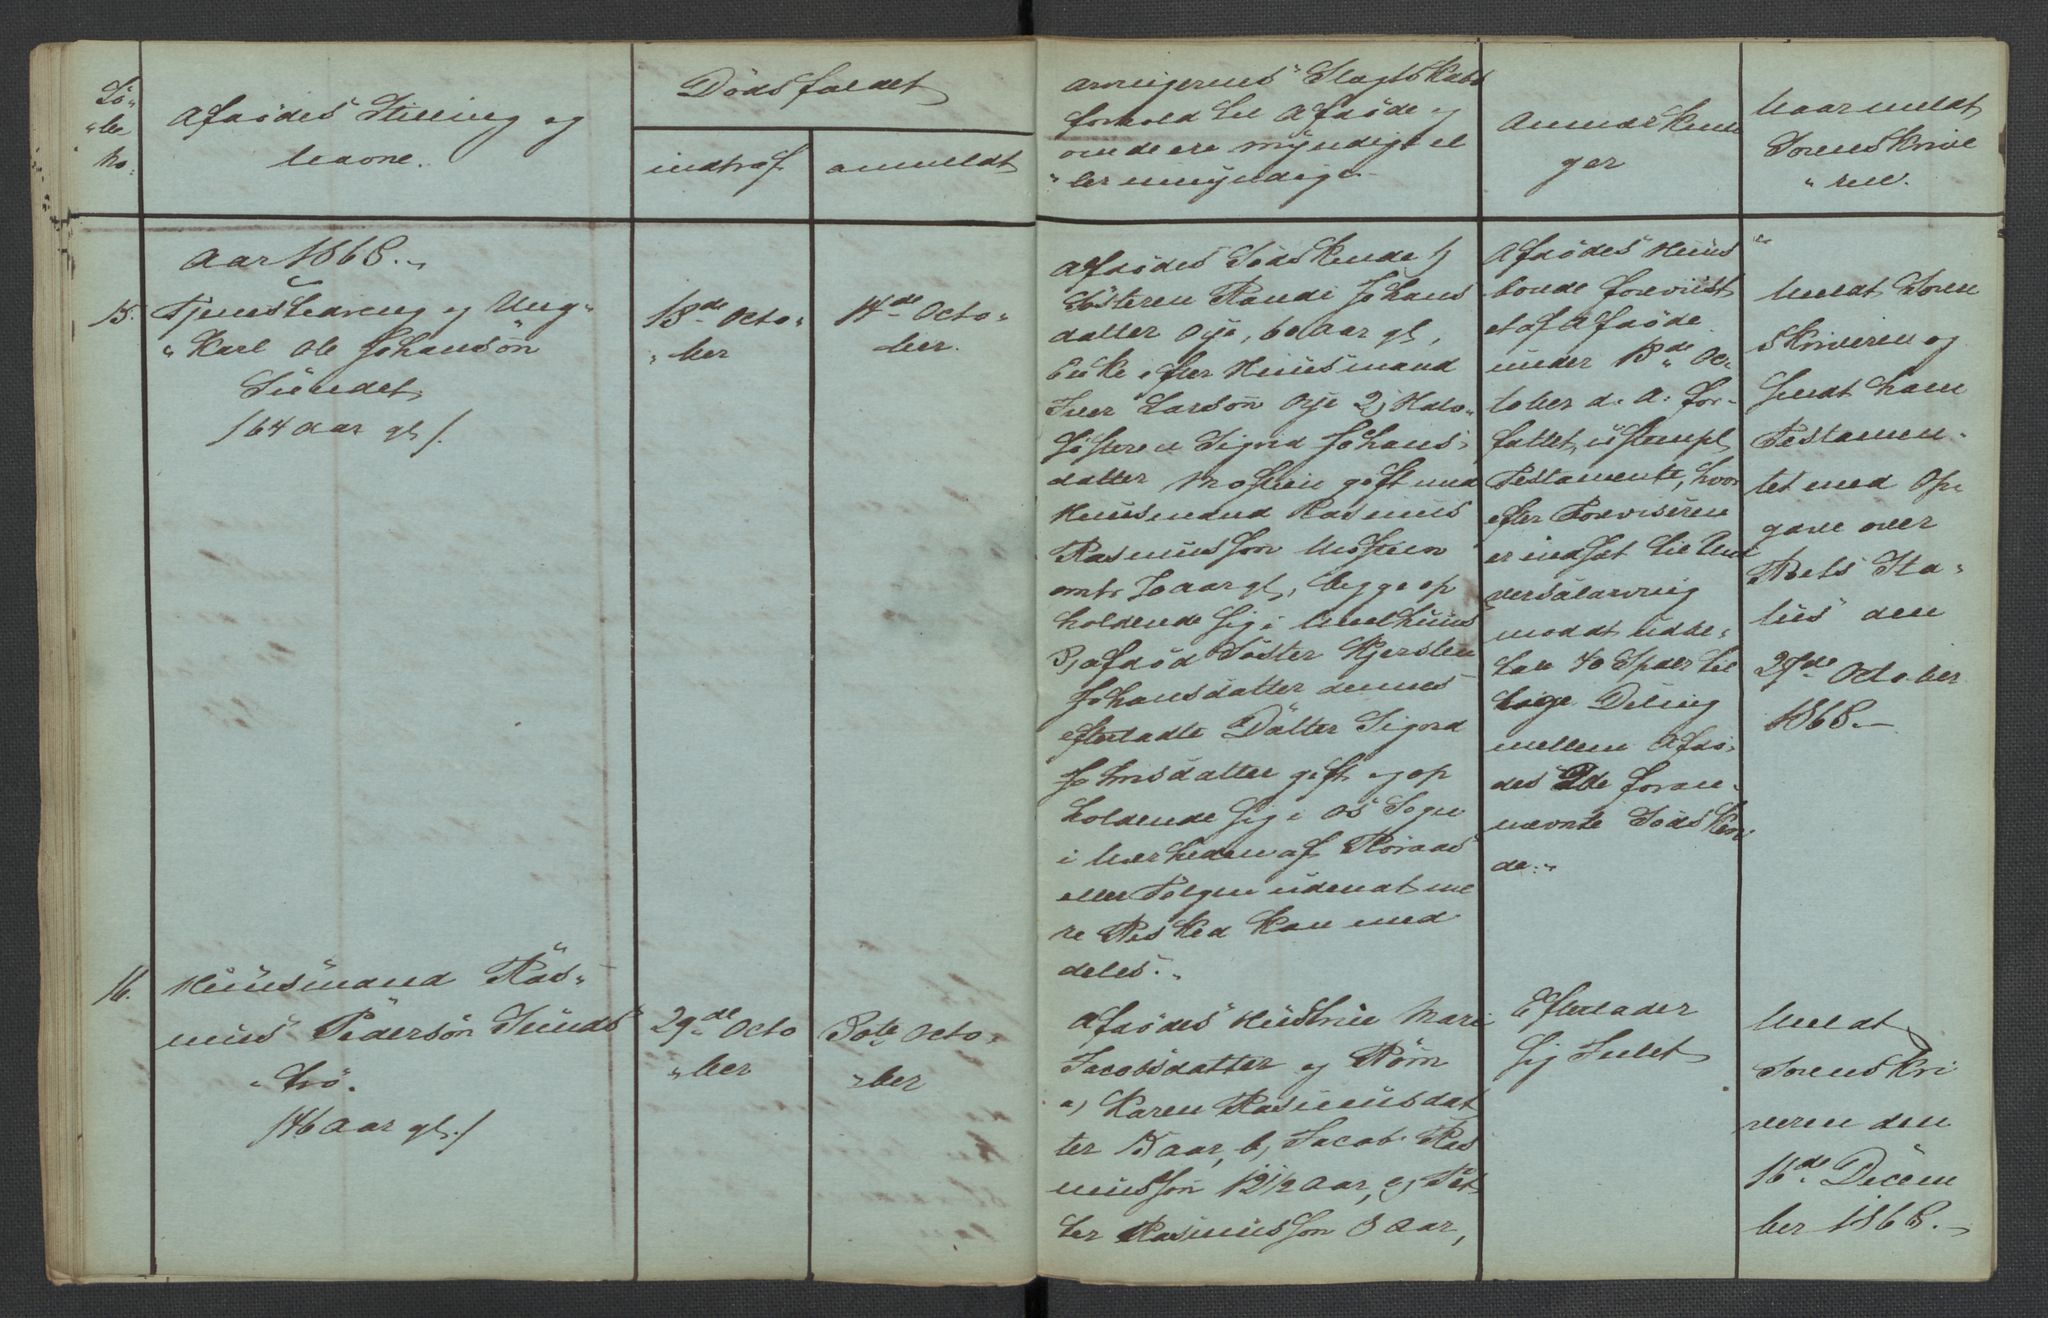 Lö-
"be
No.
Afdödes Stilling og
Navne.
Dödsfaldet
indtraf
anmeldt
Arvingernes Slægtskabs
forhold til Afdöde og
om de ere myndige el
"ler umyndige.
Anmærknin
ger
Naar meldt
Sorenskrive
"ren.
Aar 1868.
15.
Tjenestedreng og Ung-
"karl Ole Johansön
Sundet
/64 Aar gl/.
13de Octo-
"ber
14de Octo-
ber.
Afdödes Södskende 1)
Sösteren Randi Johans
datter Öye, 60 Aar gl,
Enke efter Huusmand
Iver Larsön Öye 2) Halv-
Söster Sigrid Johans-
datter Mostein gift med
Huusmand Rasmus
Rasmussön Mostein
omtr. 70 aar gl, begge op
holdende sig i Meelhuus
3) afdöd Söster Kjersten
Johansdatter dennes
efterladte Datter Sigrid
Jonsdatter gift og op
holdende sig i Os Sogn
i Nærheden af Röraas
eller Tolgen uden at me
re Besked kan med
deles.
Afdödes Huus
bonde foreviist
et af Afdöde
under 13de Oc-
tober d. A. for-
fattet ustemplt
Testamente, hvor
efter Foreviseren
er indsat til Uni
versalarving
modat udbe-
tale 40 Spdr til
lige Deling
mellem Afdö-
des 2de foran-
nævnte Södsken
de.
Meldt Soren
skriveren og
sendt ham
Testamen-
tet med Op-
gave over
Boets Sta-
tus den
29de October
1868.
16.
Huusmand Ras-
mus Pedersön Sunds
"trö.
/46 Aar gl./
29de Octo
"ber
30te Octo-
"ber
Afdödes Hustrue Mari
Jacobsdatter og Börn
a) Karen Rasmusdat
ter 15 aar, b) Jacob Ras
mussön 12 1/2 Aar, c) Pet-
ter Rasmussön 8 Aar,
Efterlader
sig Intet
Meldt
Sorenskri
veren den
16de Decem
ber 1868.